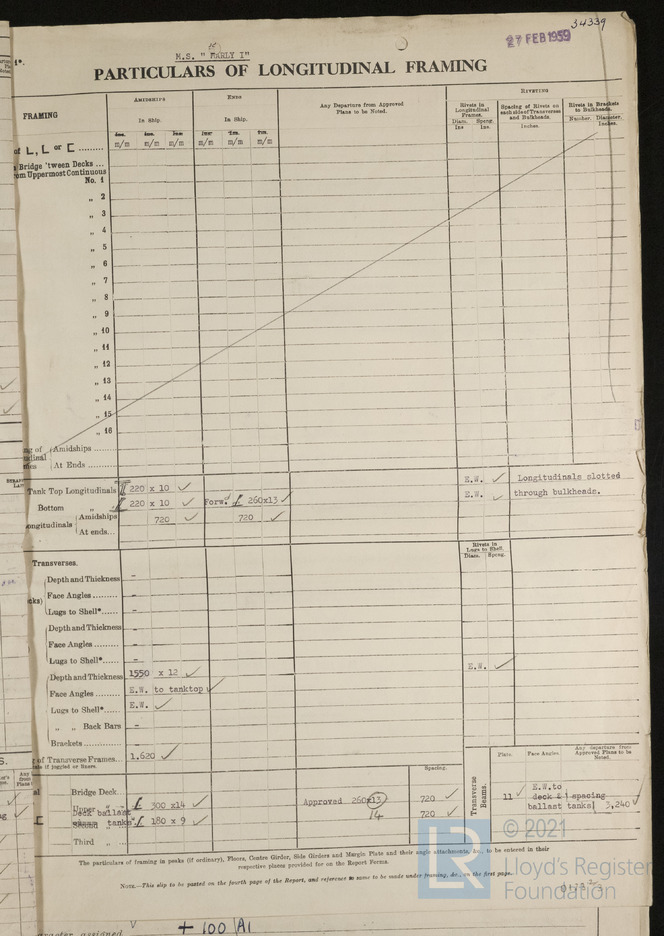 34339
27 FEB 1959
M.S. "MARLY I"
PARTICULARS OF LONGITUDINAL FRAMING
FRAMING
AMIDSHIPS
ENDS
Any Departure from Approved Plans to be Noted.
RIVETING
In Ship.
In Ship.
Rivets in Longitudinal Frames.
Spacing of Rivets on each side of Transverse and Bulkheads.
Rivets in Brackets to Bulkheads.
Diam. Spcng.
Ins Ins.
Inches.
Number. Diameter.
Inches.
m/m m/m m/m m/m m/m m/m
of L, L or [ ........
Bridge 'tween Decks ...
om Uppermost Continuous
No. 1
„ 2
„ 3
„ 4
„ 5
„ 6
„ 7
„ 8
„ 9
„ 10
„ 11
„ 12
„ 13
„ 14
„ 15
„ 16
ng of Amidships
At Ends
Tank Top Longitudinals 220 x 10 ✓ E.W. ✓ Longitudinals slotted
Bottom „ 220 x 10 ✓ Forw. 260x13 ✓ E.W. ✓ through bulkheads.
ongitudinals Amidships 720 ✓ 720 ✓
At ends...
Rivets in Lugs to Shell.
Diam. Spcng.
Transverses.
Depth and Thickness -
Face Angles -
Lugs to Shell* -
Depth and Thickness -
Face Angles -
Lugs to Shell* - E.W. ✓
Depth and Thickness 1550 x 12 ✓
Face Angles E.W. to tanktop ✓
Lugs to Shell* E.W. ✓
„ „ Back Bars -
Brackets -
g of Transverse Frames... 1,620 ✓
if joggled or liners.
Spacing.
Transverse Beams.
Plate. Face Angles. Any departure from Approved Plans to be Noted.
Bridge Deck
Upper „ „ 300 x14 ✓ Approved 260x13 720 ✓
14
Deck ballast
Second tanks 180 x 9 ✓ 720 ✓
Third „
11 ✓ E.W.to
deck & spacing
ballast tanks 3,240 ✓
The particulars of framing in peaks (if ordinary), Floors, Centre Girder, Side Girders and Margin Plate and their angle attachments, &c., to be entered in their
respective places provided for on the Report Forms.
NOTE.—This slip to be pasted on the fourth page of the Report, and reference to same to be made under framing, &c., on the first page.
© 2021
Lloyd's Register
Foundation
LR
aracter assigned
+ 100 A1